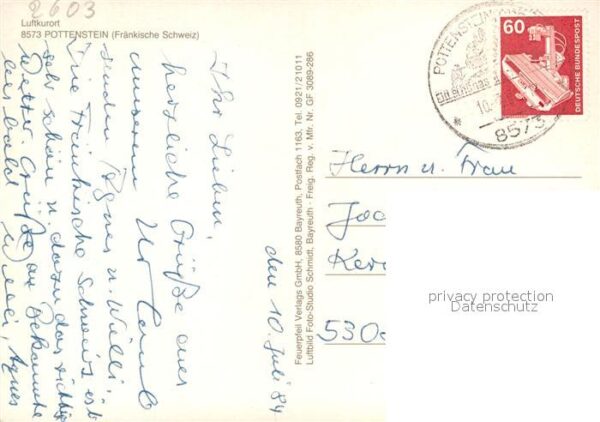 2603
Luftkurort
8573 POTTENSTEIN (Fränkische Schweiz)
den 10. Juli 84
Ihr Lieben,
herzliche Grüße aus
unserem Urlaub
senden Agnes u. Willi.
Die Fränkische Schweiz ist
sehr schön u. dazu das richtige
Wetter. Grüße an Bekannte
bis bald Willi, Agnes
Feuerpfeil Verlags GmbH, 8580 Bayreuth, Postfach 1163, Tel. 0921/21011
Luftbild Foto-Studio Schmidt, Bayreuth - Freig. Reg. v. Mfr. Nr. GF 3089-286
POTTENSTEIN
10.
8573
60
DEUTSCHE BUNDESPOST
Herrn u. Frau
530
privacy protection
Datenschutz